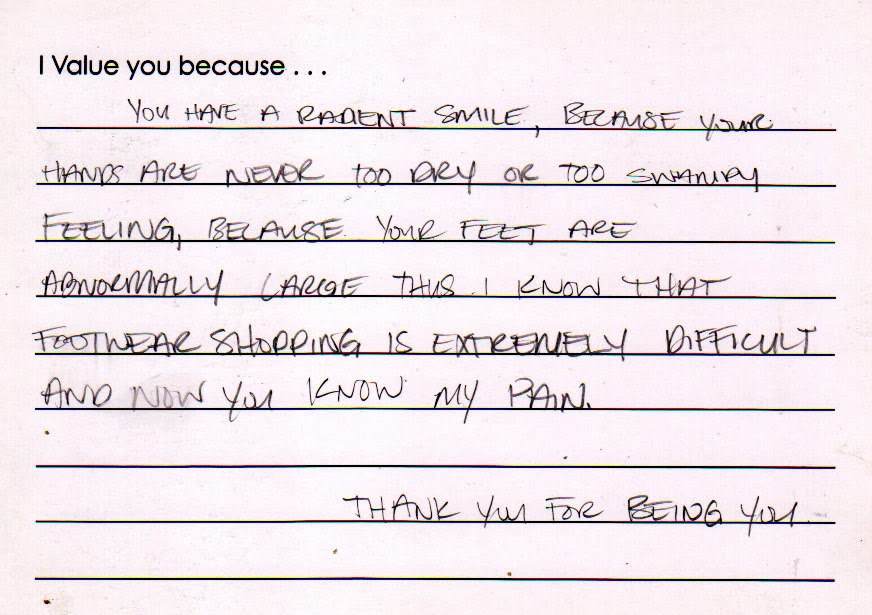 I Value you because . . .
YOU HAVE A RADIENT SMILE, BECAUSE YOUR
HANDS ARE NEVER TOO DRY OR TOO SWEATY
FEELING, BECAUSE YOUR FEET ARE
ABNORMALLY LARGE THUS I KNOW THAT
FOOTWEAR SHOPPING IS EXTREMELY DIFFICULT
AND NOW YOU KNOW MY PAIN.
THANK YOU FOR BEING YOU.